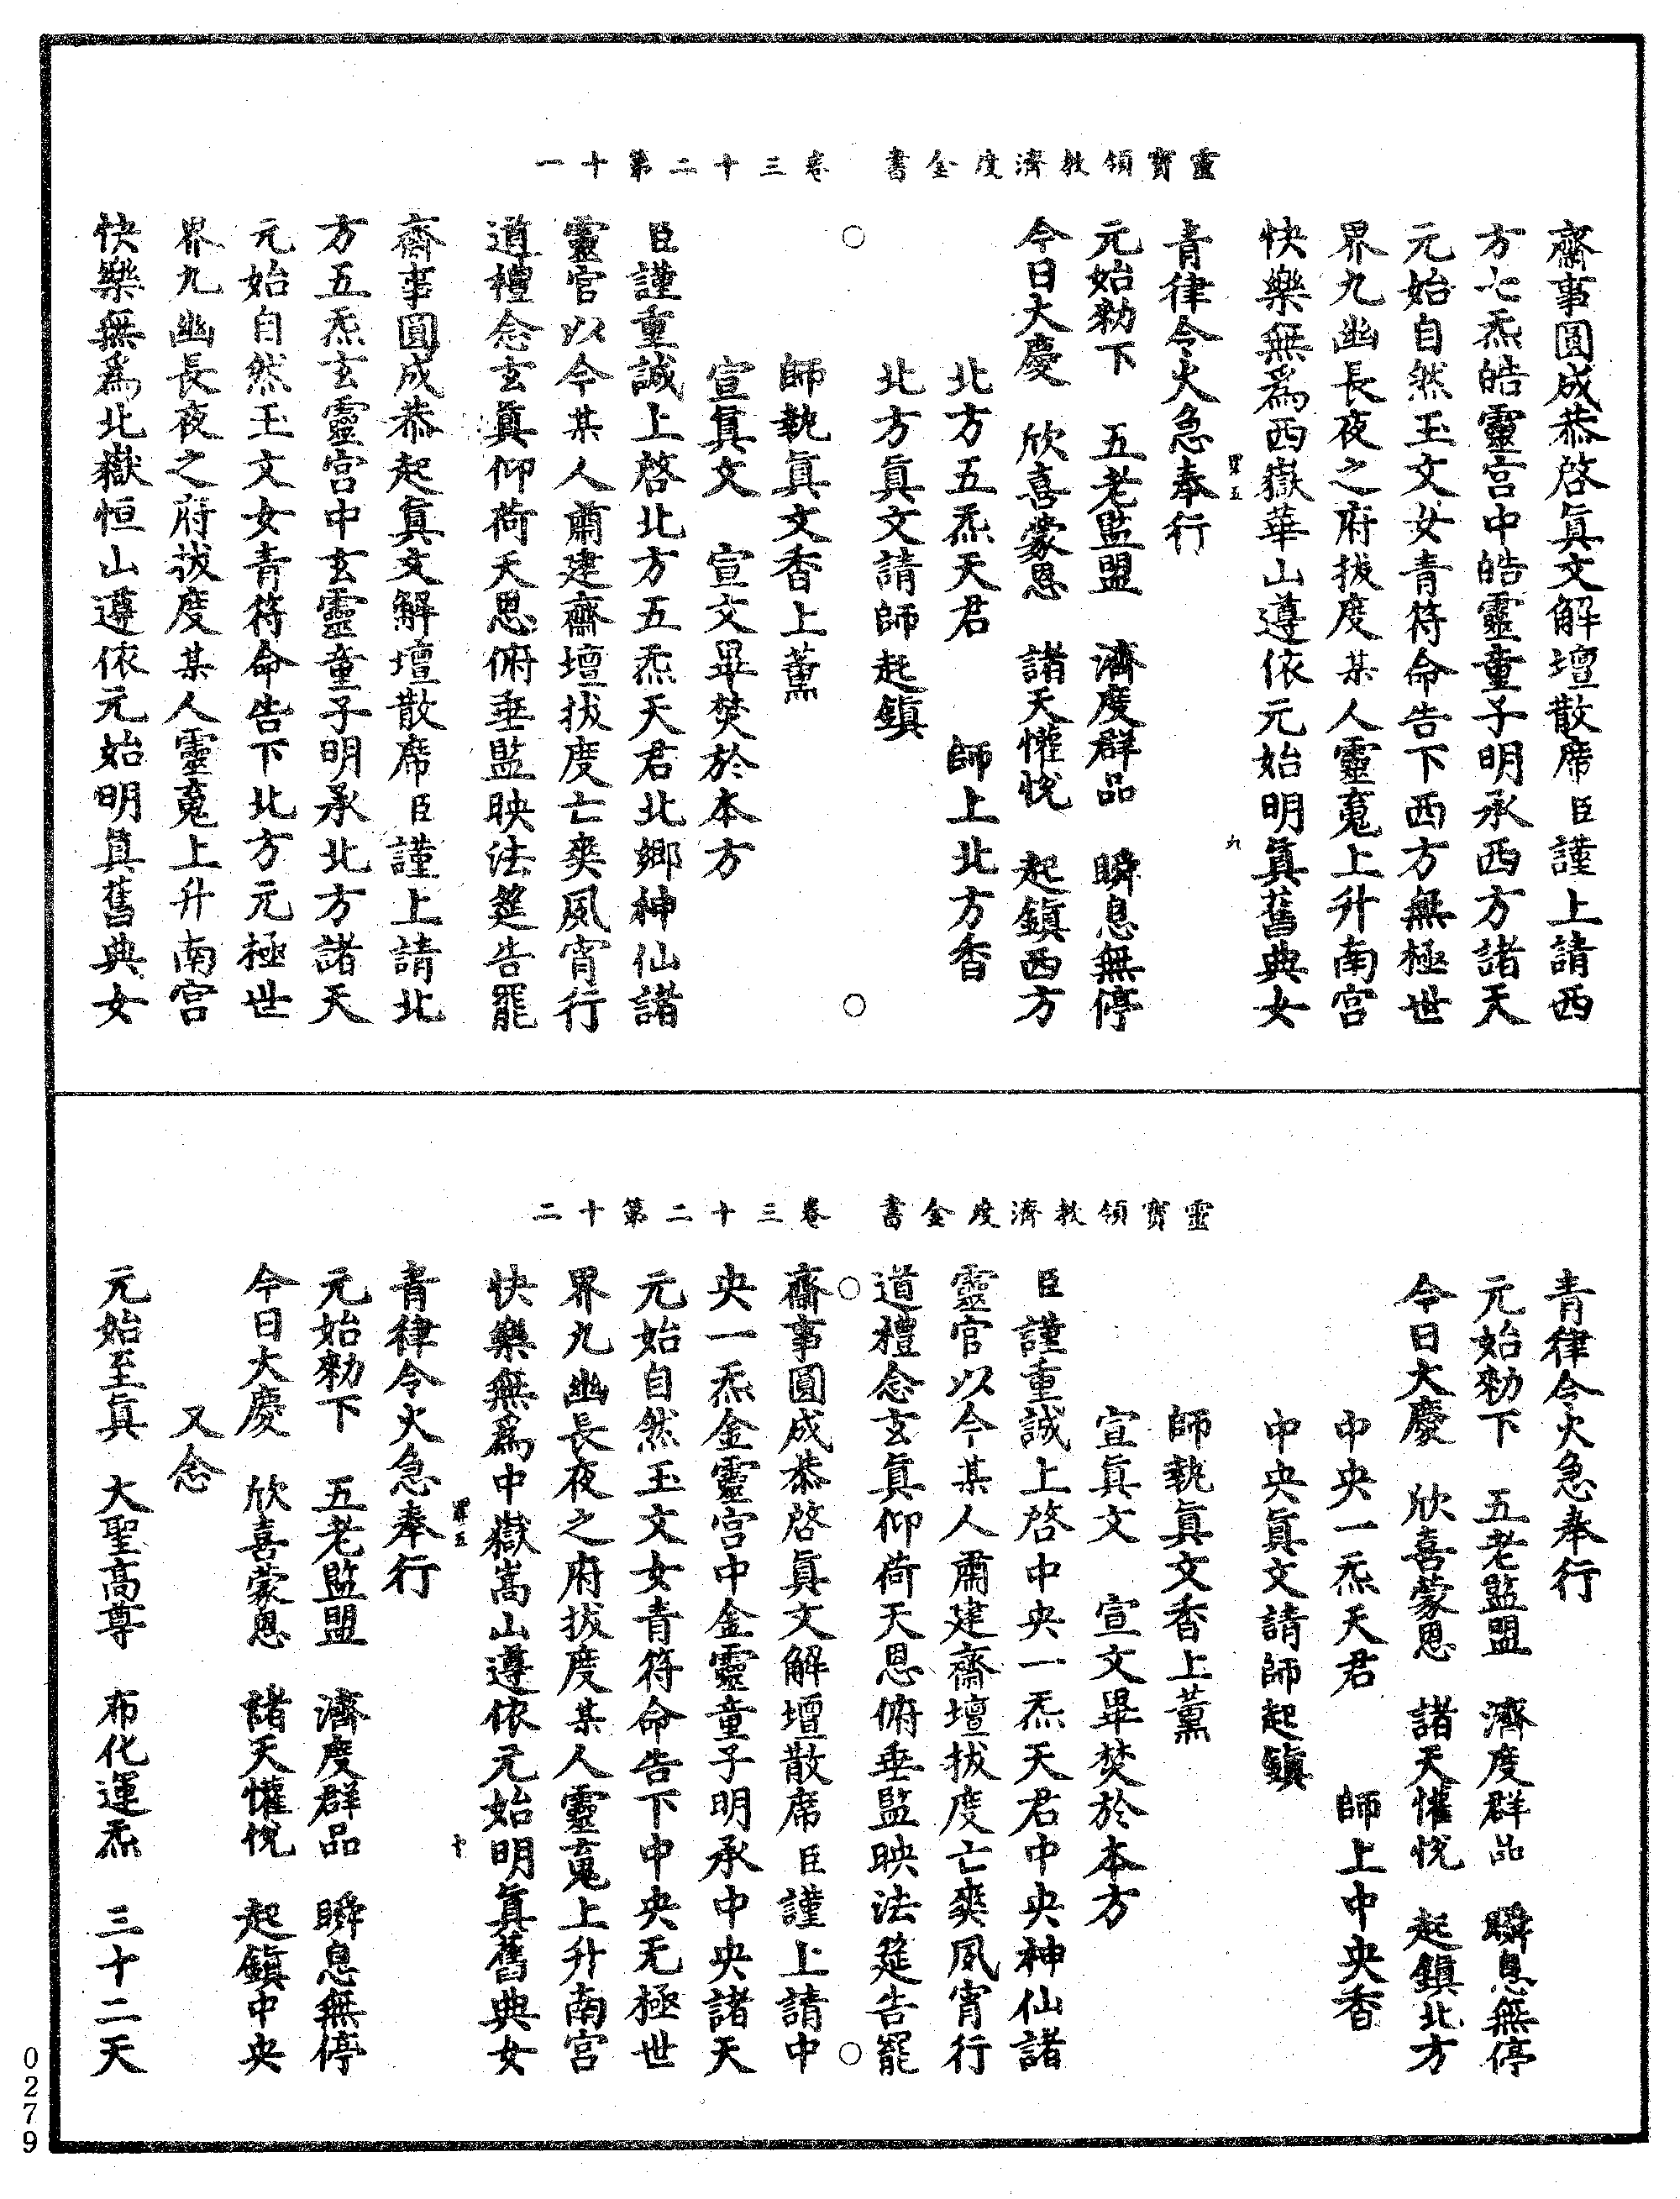 靈寶領教濟度金書　卷三十二第十一
齋事圓成恭啓眞文解壇散席臣謹上請西
方七炁皓靈宮中皓靈童子明承西方諸天
元始自然玉文女青符命告下西方無極世
界九幽長夜之府拔度某人靈䰟上升南宮
快樂無爲西嶽華山遵依元始明眞舊典女
青律令火急奉行
元始勑下　五老監盟　濟度群品　瞬息無停
今日大慶　欣喜蒙恩　諸天懽悅　起鎭西方
北方五炁天君　師上北方香
北方眞文請師起鎭
師執眞文香上薰
宣眞文　宣文畢焚於本方
臣謹重誠上啓北方五炁天君北鄉神仙諸
靈官以今某人肅建齋壇拔度亡爽夙宵行
道禮念玄眞仰荷天恩俯垂監映法筵告罷
齋事圓成恭起眞文解壇散席臣謹上請北
方五炁玄靈宮中玄靈童子明承北方諸天
元始自然玉文女青符命告下北方元極世
界九幽長夜之府拔度某人靈䰟上升南宮
快樂無爲北嶽恒山遵依元始明眞舊典女
靈寶領教濟度金書　卷三十二第十二
青律令火急奉行
元始勑下　五老監盟　濟度群品　瞬息無停
今日大慶　欣喜蒙恩　諸天懽悅　起鎭北方
中央一炁天君　師上中央香
中央眞文請師起鎭
師執眞文香上薰
宣眞文　宣文畢焚於本方
臣謹重誠上啓中央一炁天君中央神仙諸
靈官以今某人肅建齋壇拔度亡爽夙宵行
道禮念玄眞仰荷天恩俯垂監映法筵告罷
齋事圓成恭啓眞文解壇散席臣謹上請中
央一炁金靈宮中金靈童子明承中央諸天
元始自然玉文女青符命告下中央无極世
界九幽長夜之府拔度某人靈䰟上升南宮
快樂無爲中嶽嵩山遵依元始明眞舊典女
青律令火急奉行
元始勑下　五老監盟　濟度群品　瞬息無停
今日大慶　欣喜蒙恩　諸天懽悅　起鎭中央
又念
元始至眞　大聖高尊　布化運炁　三十二天
0279